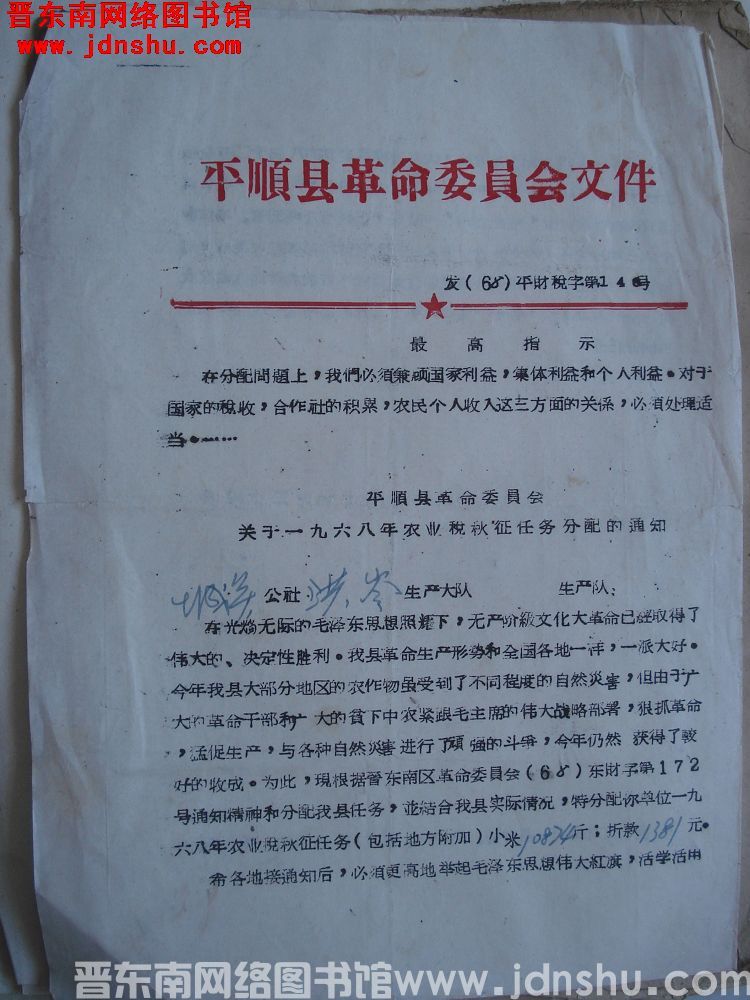 晋东南网络图书馆
www.jdnshu.com
平順县革命委員会文件
发(68)平財稅字第140号
最高指示
在分配問題上，我們必須兼顾国家利益，集体利益和个人利益。对于
国家的稅收，合作社的积累，农民个人收入这三方面的关係，必須处理适
当。……
平順县革命委員会
关于一九六八年农业稅秋征任务分配的通知
公社 洪岑 生产大队 生产队：
在光焰无际的毛泽东思想照耀下，无产阶級文化大革命已經取得了
伟大的、决定性胜利。我县革命生产形势和全国各地一样，一派大好。
今年我县大部分地区的农作物虽受到了不同程度的自然災害，但由于广
大的革命干部和广大的貧下中农紧跟毛主席的伟大战略部署，狠抓革命
，猛促生产，与各种自然災害进行了頑强的斗爭，今年仍然获得了較
好的收成。为此，現根据晋东南区革命委員会(68)东財字第172
号通知精神和分配我县任务，並結合我县实际情况，特分配你单位一九
六八年农业稅秋征任务(包括地方附加)小米10824斤；折款1381元。
希各地接通知后，必須更高地举起毛泽东思想伟大紅旗，活学活用
晋东南网络图书馆www.jdnshu.com